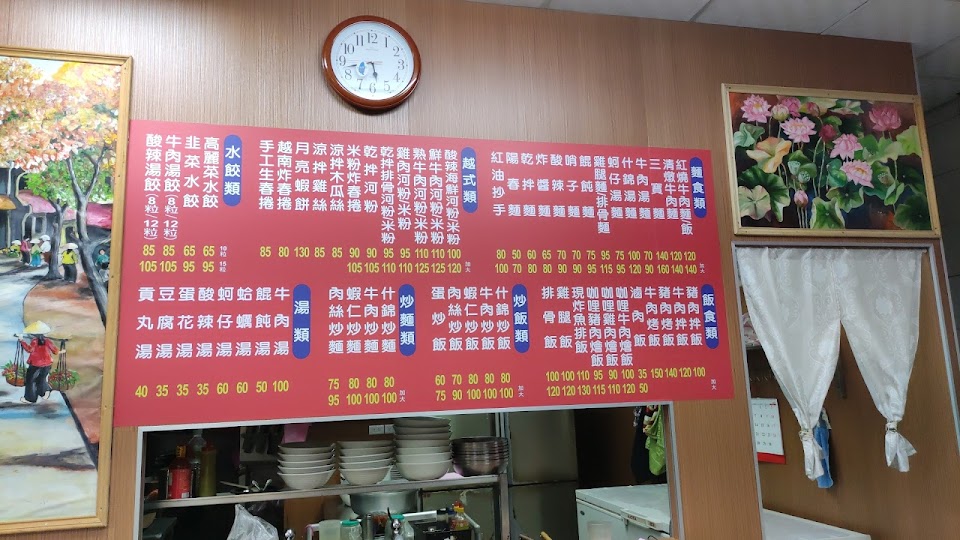 麵食類
紅燒牛肉麵/飯
清燉牛肉麵
三寶麵
牛肉湯麵
什錦湯麵
蚵仔湯麵
雞腿麵排骨麵
餛飩麵
哨子麵
酸辣麵
炸醬麵
乾拌麵
陽春麵
紅油抄手
80 50 60 65 70 70 75 95 75 100 70 140 120 120
100 70 80 80 90 90 95 115 95 120 90 160 140 140 加大
越式類
酸辣海鮮河粉米粉
鮮牛肉河粉米粉
熟牛肉河粉米粉
雞肉河粉米粉
乾拌排骨河粉米粉
乾拌河粉
米粉炸春捲
涼拌木瓜絲
涼拌雞絲
月亮蝦餅
越南炸春捲
手工生春捲
85 80 130 85 85 90 90 95 95 110 110 100
105 105 110 110 125 125 120 加大
水餃類
高麗菜水餃
韭菜水餃
牛肉湯餃(8粒/12粒)
酸辣湯餃(8粒/12粒)
85 85 65 65 10粒
105 105 95 95 15粒
飯食類
豬肉拌飯
牛肉拌飯
豬肉烤飯
牛肉烤飯
滷肉飯
咖哩牛肉燴飯
咖哩雞肉燴飯
咖哩豬肉燴飯
現炸魚排飯
雞腿飯
排骨飯
100 100 110 95 90 100 35 150 140 120 100
120 120 130 115 110 120 50 加大
炒飯類
什錦炒飯
牛肉炒飯
蝦仁炒飯
肉絲炒飯
蛋炒飯
60 70 80 80 80
75 90 100 100 100 加大
炒麵類
什錦炒麵
牛肉炒麵
蝦仁炒麵
肉絲炒麵
75 80 80 80
95 100 100 100 加大
湯類
牛肉湯
餛飩湯
蛤蠣湯
蚵仔湯
酸辣湯
蛋花湯
豆腐湯
貢丸湯
40 35 35 35 60 60 50 100